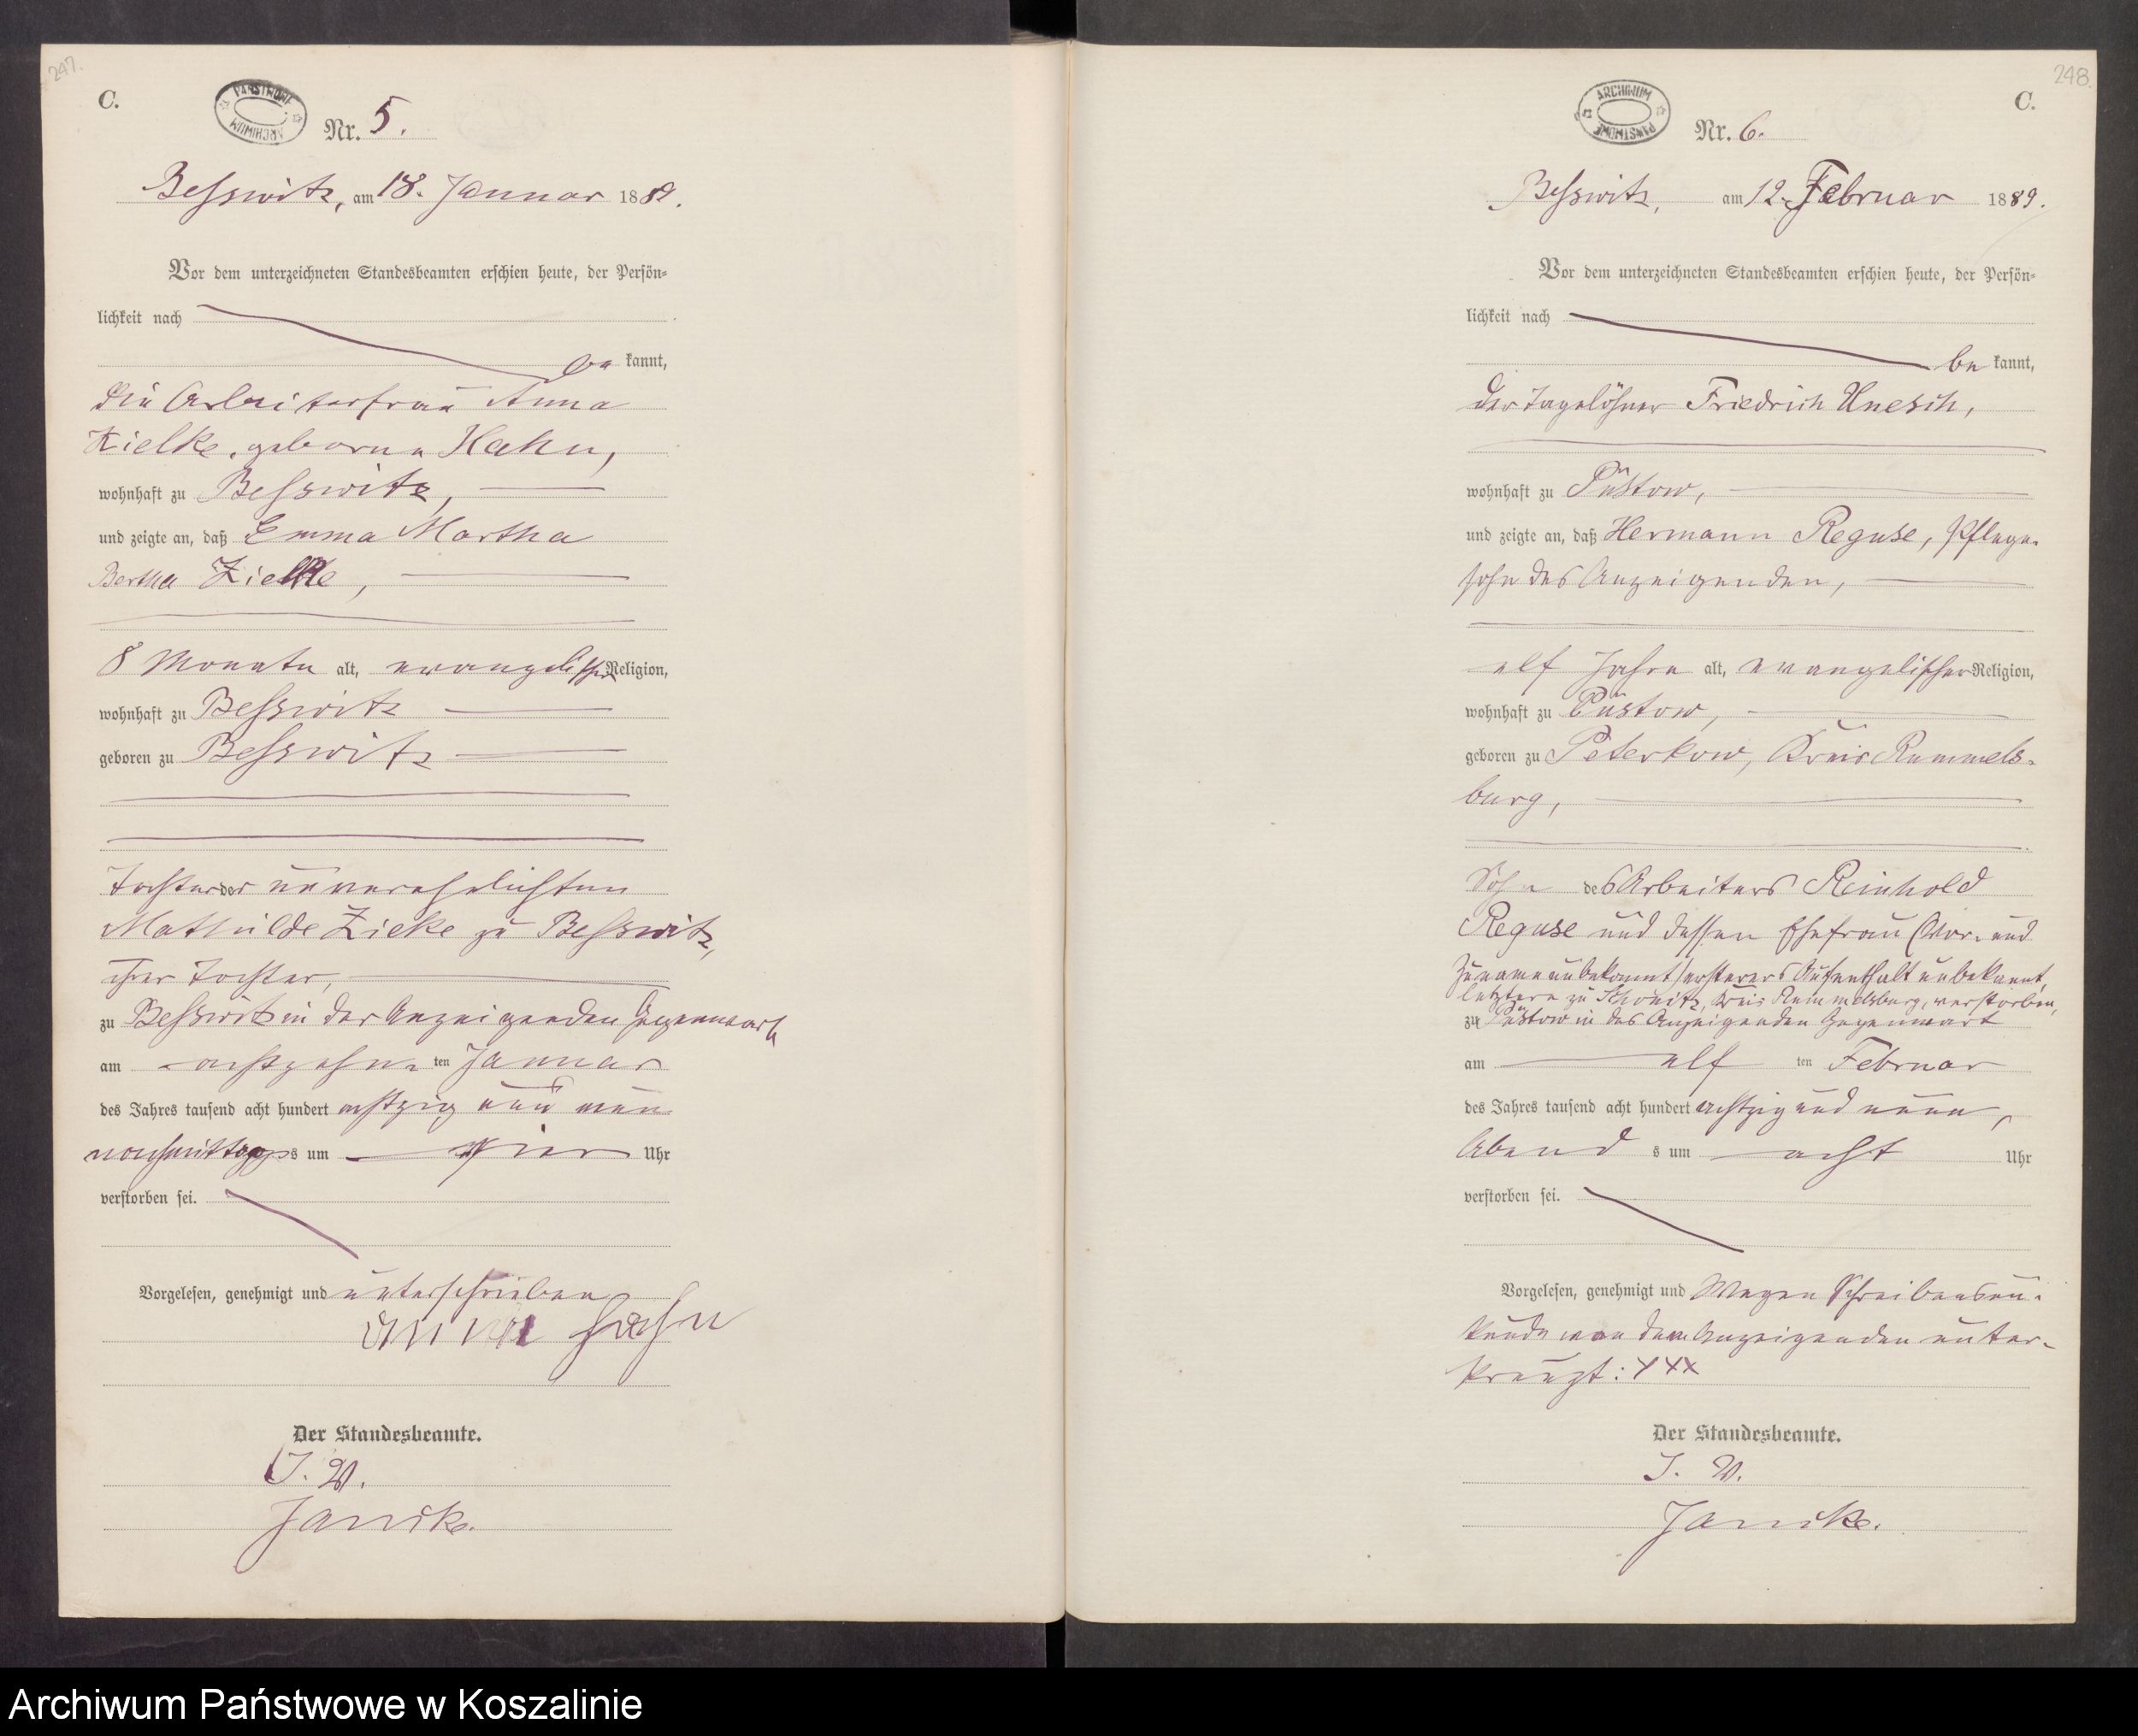 247.
C.
PAŃSTWOWE ARCHIWUM
Nr. 5.
Besswitz, am 18. Januar 1889.
Vor dem unterzeichneten Standesbeamten erschien heute, der Persön-
lichkeit nach
be kannt,
die Arbeiterfrau Anna
Zielke, geborne Hahn,
wohnhaft zu Besswitz,
und zeigte an, daß Emma Martha
Bertha Zielke,
8 Monate alt, evangelischer Religion,
wohnhaft zu Besswitz
geboren zu Besswitz
Tochter der unverehelichten
Mathilde Zielke zu Besswitz,
ihrer Tochter,
zu Besswitz in der Anzeigenden Gegenwart
am achtzehn ten Januar
des Jahres tausend acht hundert achtzig und neun
nachmittags um vier Uhr
verstorben sei.
Vorgelesen, genehmigt und unterschrieben
Anna Hahn
Der Standesbeamte.
J. V.
Janike.
248.
C.
ARCHIWUM PAŃSTWOWE
Nr. 6.
Besswitz, am 12. Februar 1889.
Vor dem unterzeichneten Standesbeamten erschien heute, der Persön-
lichkeit nach
be kannt,
der Tagelöhner Friedrich
wohnhaft zu Püstow,
und zeigte an, daß Hermann Reguse, Pflege-
sohn des Anzeigenden,
elf Jahre alt, evangelischer Religion,
wohnhaft zu Püstow,
geboren zu Peterkow, Kreis Rummels-
burg,
Sohn des Arbeiters Reinhold
Reguse und dessen Ehefrau (Vor- und
Zuname unbekannt) ersterer Aufenthalt unbekannt,
letztere zu Kreis Rummelsburg, verstorben,
zu Püstow in des Anzeigenden Gegenwart
am elf ten Februar
des Jahres tausend acht hundert achtzig und neun,
Abend s um acht Uhr
verstorben sei.
Vorgelesen, genehmigt und Wegen Schreibensun-
kunde von dem Anzeigenden unter-
kreuzt: XXX
Der Standesbeamte.
J. V.
Janike.
Archiwum Państwowe w Koszalinie